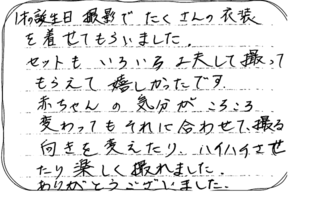 1才の誕生日撮影でたくさんの衣装
を着せてもらいました。
セットもいろいろ工夫して撮って
もらえて嬉しかったです。
赤ちゃんの気分がころころ
変わってもそれに合わせて、撮る
向きを変えたり、ハイハイさせ
たり楽しく撮れました。
ありがとうございました。